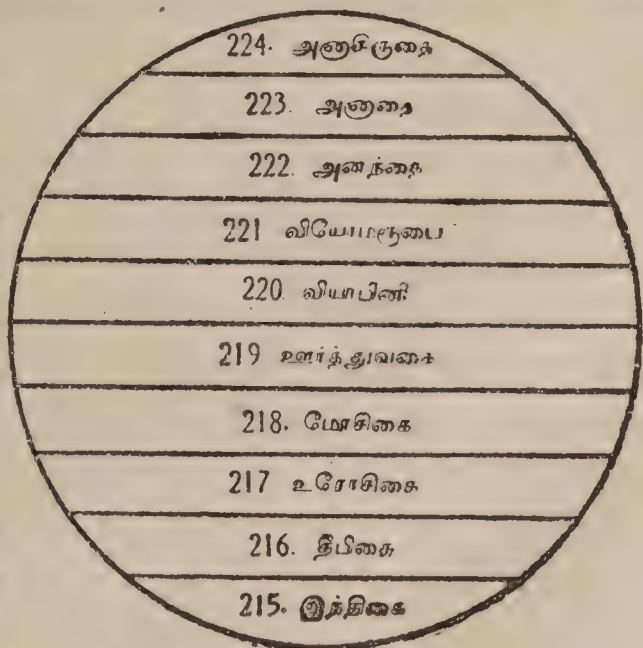 224. அனாசிருதை
223. அனாதை
222. அனந்தை
221 வியோமரூபை
220. வியாபினி
219 ஊர்த்துவகை
218. மோசிகை
217 உரோசிகை
216. தீபிகை
215. இந்திகை